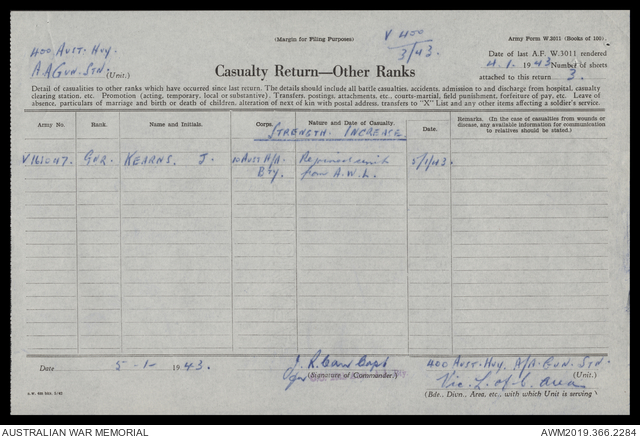 (Margin for Filing Purposes)
V 400
3/43.
Army Form W.3011 (Books of 100).
400 Aust. Hvy.
A A Gun. Stn. (Unit.)
Date of last A.F. W.3011 rendered
4. 1. 1943 Number of sheets
attached to this return 3.
Casualty Return—Other Ranks
Detail of casualties to other ranks which have occurred since last return. The details should include all battle casualties, accidents, admission to and discharge from hospital, casualty
clearing station, etc. Promotion (acting, temporary, local or substantive). Transfers, postings, attachments, etc., courts-martial, field punishment, forfeiture of pay, etc. Leave of
absence, particulars of marriage and birth or death of children, alteration of next of kin with postal address, transfers to "X" List and any other items affecting a soldier's service.
Army No. Rank. Name and Initials. Corps. Nature and Date of Casualty. Date. REMARKS. (In the case of casualties from wounds or disease, any available information for communication to relatives should be stated.)
STRENGTH INCREASE
Gnr. KEARNS. J. Aust A/A Rejoined unit 5/1/43.
Bty. from A.W.L.
Date 5-1-1943.
J. R. Capt
for (Signature of Commander.)
400 Aust. Hvy. A/A. Gun. Stn.
(Unit.)
Vic. L. of C. area
(Bde., Divn., Area, etc., with which Unit is serving)
AUSTRALIAN WAR MEMORIAL
AWM2019.366.2284